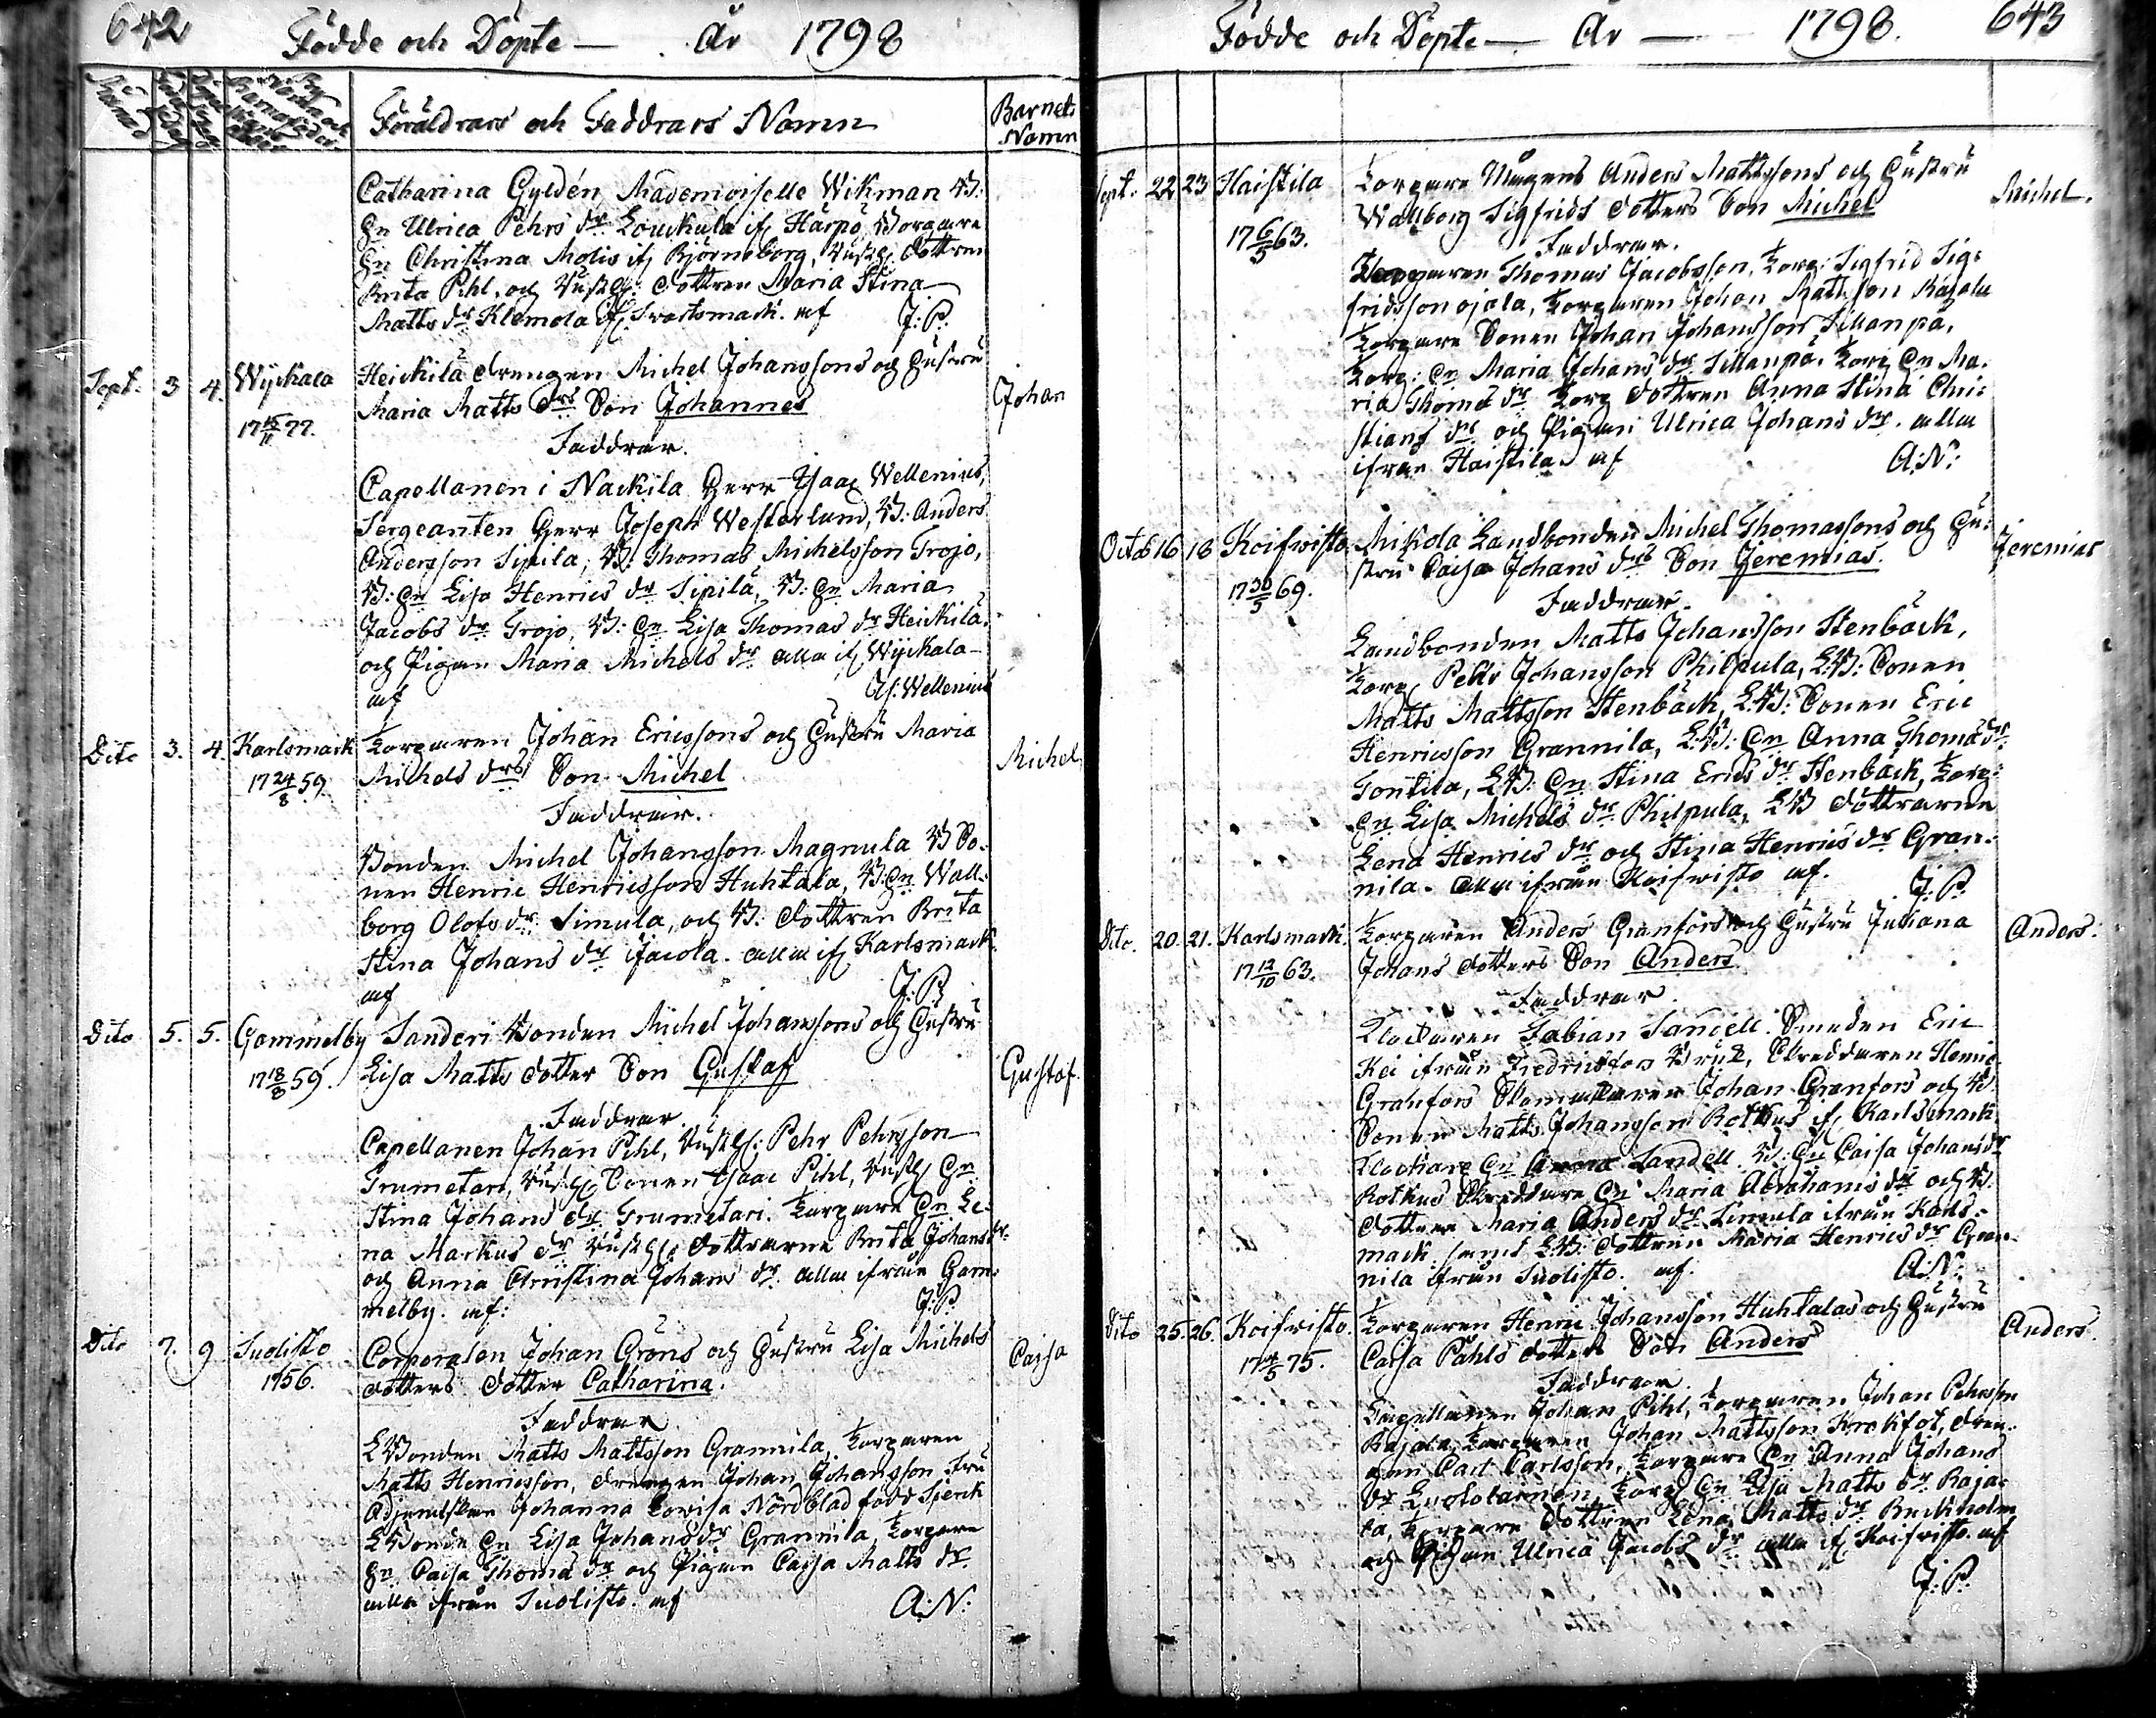 642
Födde och Döpte — År 1798
Föräldrars och Faddrars Namn
Barnets
Namn
Catharina Gyldén Mademoiselle Wikman B:
Hn Ulrica Pehrs dr Louckula if Harpö, Borgare
Hn Christina Molis if Björneborg, Dottren
Brita Pihl, och Dottren Maria Stina
Matts dr Klemola if Svartsmark. mf J:P:
Sept: 3 4. Wyckala Heickilä drengen Michel Johanssons och Hustru Johan
17 15/11 77. Maria Matts drs Son Johannes
Faddrar.
Capellanen i Nackila Herr Isaac Wellenius,
Sergeanten Herr Joseph Westerlund, B: Anders
Andersson Sipila, B: Thomas Michelsson Trojo,
B: Hn Lisa Henrics dr Sipilä, B: Hn Maria
Jacobs dr Trojo, B: Hn Lisa Thomas dr Heickilä,
och Pigan Maria Michels dr alla if Wyckala
mf Is: Wellenius
Dito 3. 4. Karlsmark Torparen Johan Ericssons och Hustru Maria Michel
17 24/8 59. Michels drs Son Michel
Faddrar.
Bonden Michel Johansson Magnula B So-
nen Henric Henricsson Huhtala, B: Hn Wall-
borg Olofs dr Simula, och B: dottren Brita
Stina Johans dr Jacola. alla if Karlsmark
mf J:P:
Dito 5. 5. Gammelby Sanderi Bonden Michel Johanssons och Hustru Gustaf.
17 18/8 59. Lisa Matts dotter Son Gustaf
Faddrar.
Capellanen Johan Pihl, Pehr Pehrsson
Trumetari, Sonen Isaac Pihl, Hn
Stina Johans dr Trumetari. Torpare Hn Le-
na Markus dr dottrarne Brita Johans dr
och Anna Christina Johans dr. alla ifrån Gam-
melby. mf: J:P.
Dito 7. 9 Suolisto Corporalen Johan Gröns och Hustru Lisa Michels Caisa
1756. dotters dotter Catharina.
Faddrar
LBonden Matts Mattsson Grannila, Torparen
Matts Henricsson, drengen Johan Johansson, Fru
Johanna Lovisa Nordblad född
LBonde Hn Lisa Johans dr Grannila, Torpare
Hn Caisa Thomæ dr och Pigan Caisa Matts dr
alla ifrån Suolisto. mf A:N:
Födde och Döpte — År — 1798. 643
Sept: 22 23 Haistila Torpare Anders Mattssons och Hustru Michel.
17 6/5 63. Wallborg Sigfrids dotters Son Michel
Faddrar.
Torparen Thomas Jacobsson, Torp: Sigfrid Sig-
fridsson ojala, Torparen Johan Mattsson Rajala
Torpare Sonen Johan Johansson Sillanpä,
Torp: Hn Maria Johans dr Sillanpä, Torp Hn Ma-
ria Thomæ dr Torp dottren Anna Stina Chri-
stians dr och Pigan Ulrica Johans dr. alla
ifrån Haistila mf A:N:
Octob 16 18 Koifwisto Mikola Landbonden Michel Thomassons och Hu- Jeremias
17 30/5 69. stru Caisa Johans drs Son Jeremias.
Faddrar.
Landbonden Matts Johansson Stenbäck,
Torp, Pehr Johansson Philpula, LB: Sonen
Matts Mattsson Stenbäck, LB: Sonen Eric
Henricsson Grannila, LB: Hn Anna Thomæ dr
Tontila, LB: Hn Stina Erics dr Stenbäck, Torp:
Hn Lisa Michels dr Philpula, LB dottrarne
Lena Henrics dr och Stina Henrics dr Gran-
nila. alla ifrån Koifwisto mf. J:P.
Dito. 20. 21. Karlsmark Torparen Anders Granfors och Hustru Juliana Anders.
17 12/10 63. Johans dotters Son Anders
Faddrar.
Klockaren Fabian Sandell. Smeden Eric
ifrån Fredricsfors Bruk, Skreddaren Henric
Granfors Johan Granfors och B.
Sonen Matts Johansson Rotkus if, Karlsmark
Klockare Hn Sandell B: Hn Caisa Johans dr
Rotkus Skreddare Hn Maria Abrahams dr och B.
dottren Maria Anders dr Simula ifrån Karls-
mark samt LB: dottren Maria Henrics dr Gran-
nila ifrån Suolisto. mf. A:N:
Dito 25. 26. Koifwisto. Torparen Henric Johansson Huhtalas och Hustru Anders.
Caisa Påhls dotters Son Anders
Faddrar.
Capellanen Johan Pihl, Torparen Johan Pehrsson
Rajala, Torparen Johan Mattsson Krokfot, dren-
gen Carl Carlsson, Torpare Hn Anna Johans
dr Torp Hn Lisa Matts dr Raja-
la, Torpare dottren Lena Matts dr
och Pigan Ulrica Jacobs dr alla if Koifwisto. mf
J:P: